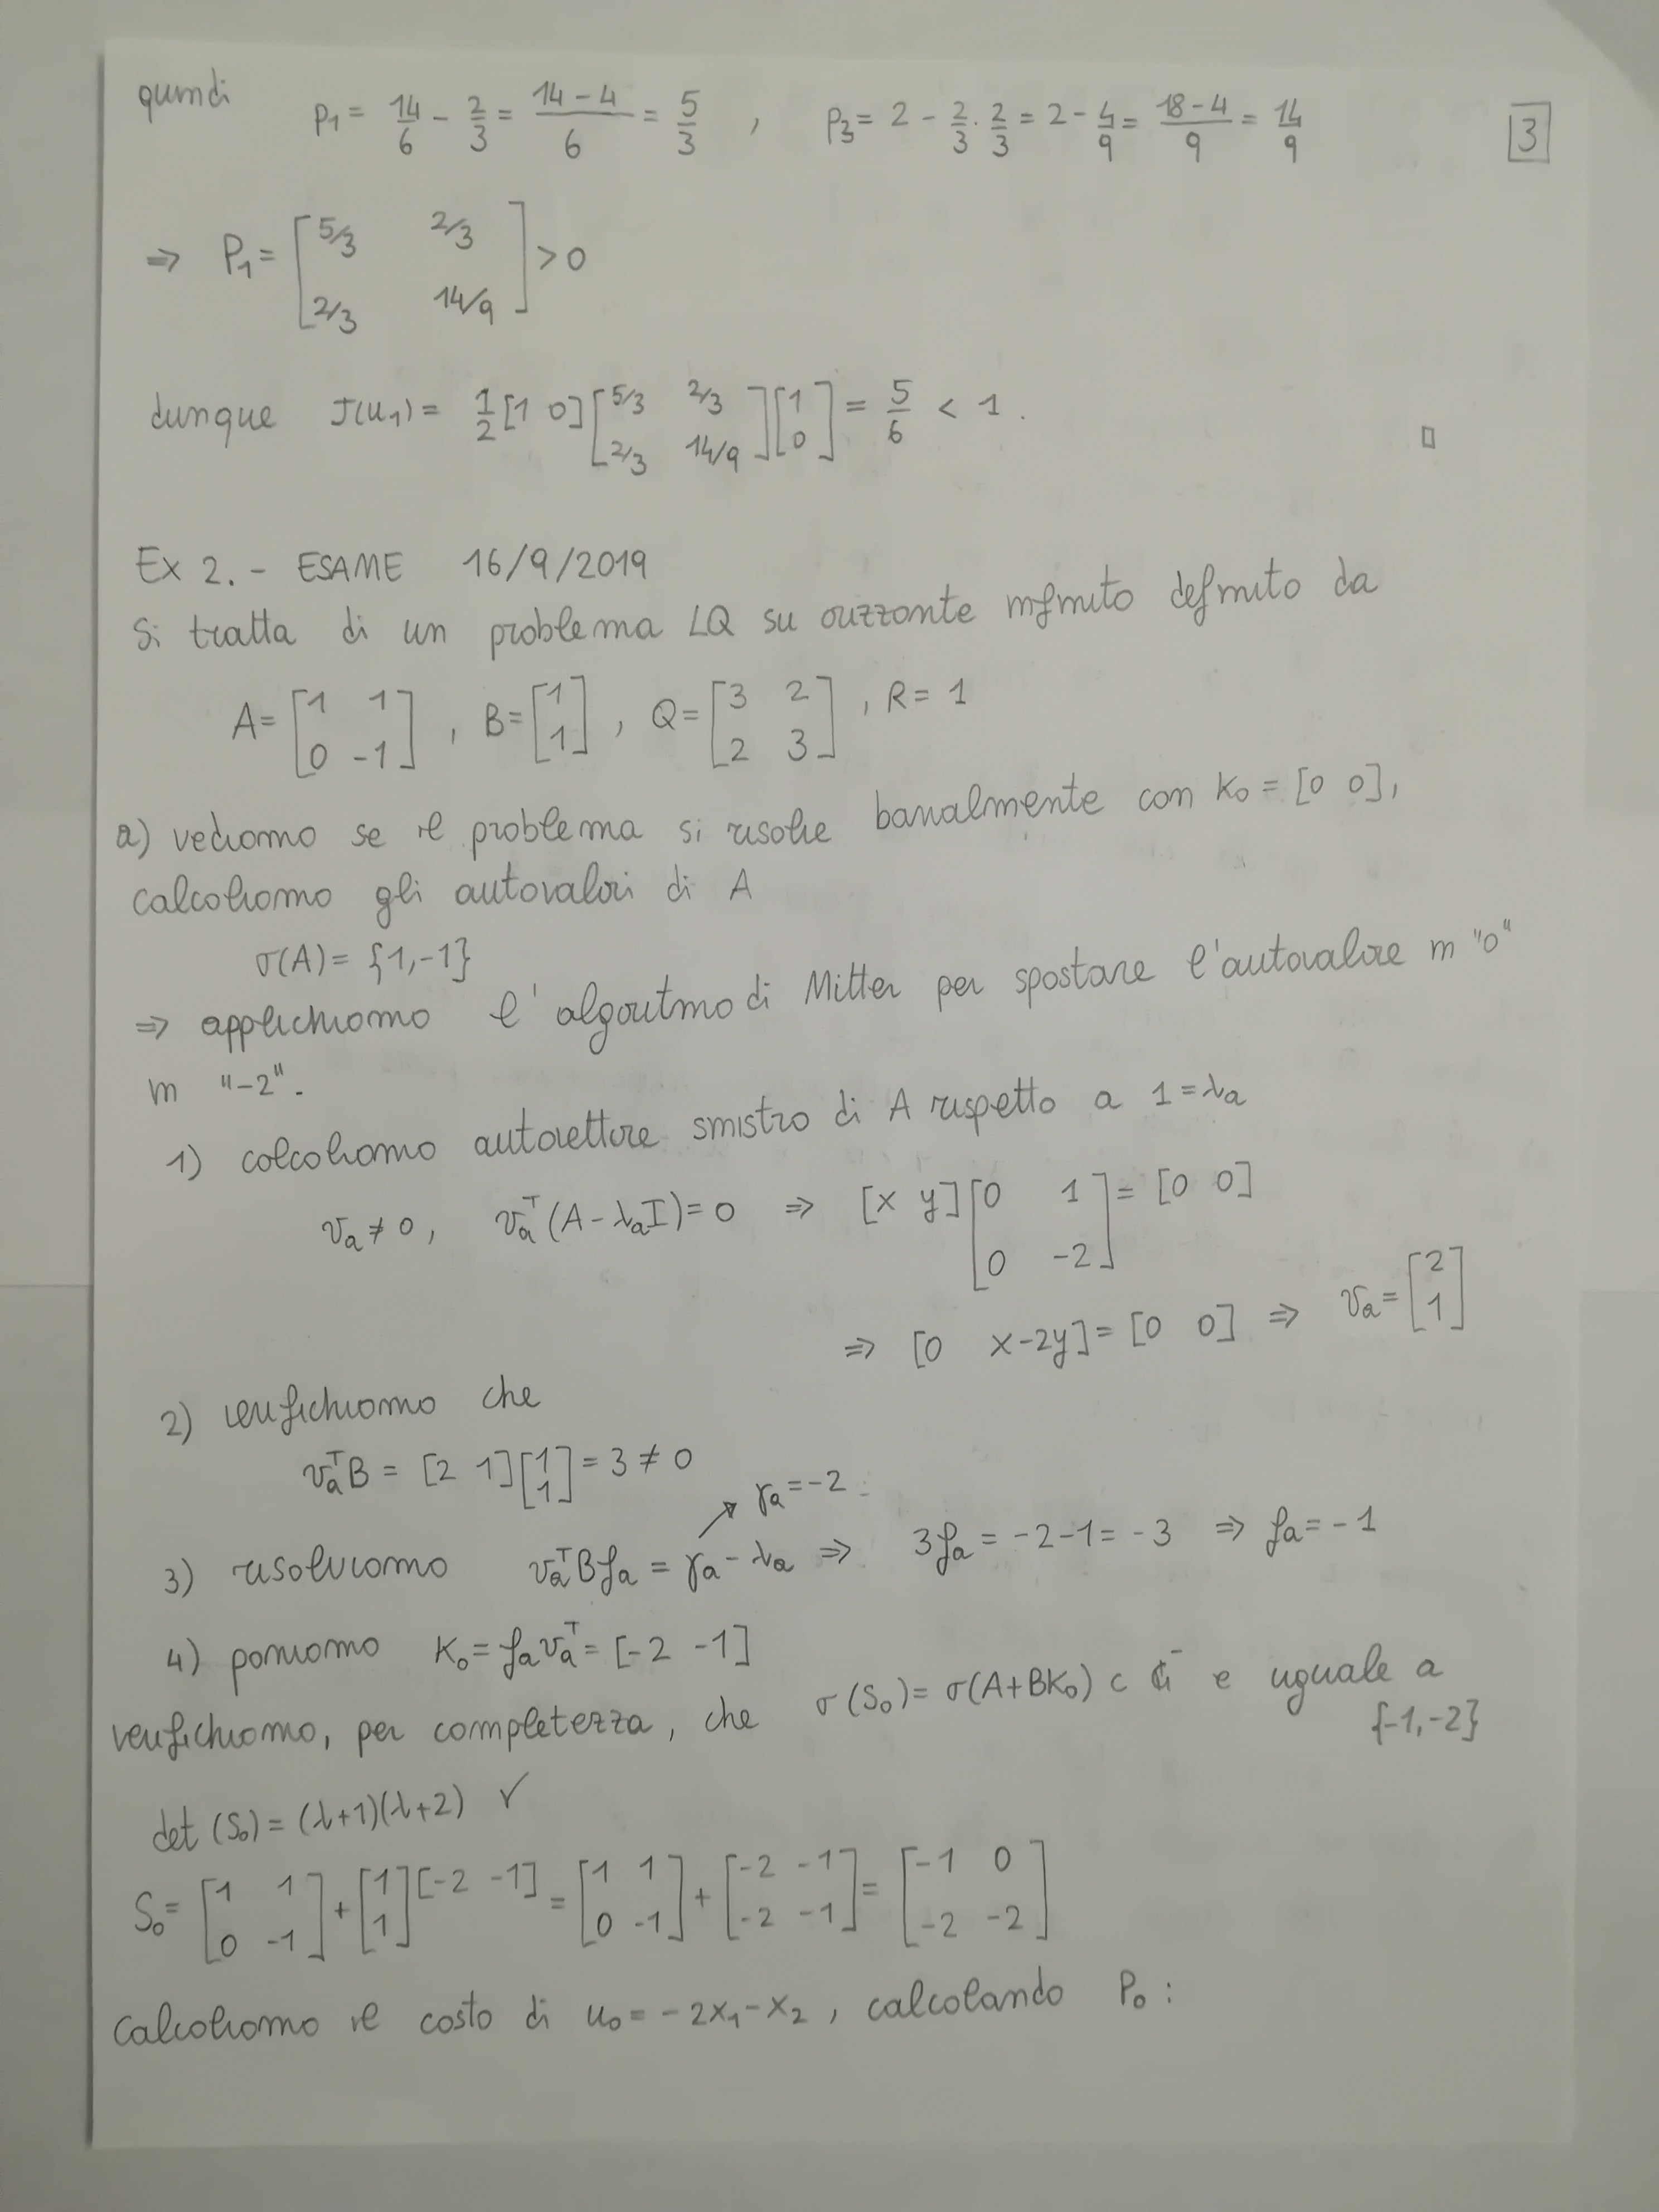 quindi P₁ = 14/6 - 2/3 = (14-4)/6 = 5/3 , P₃ = 2 - 2/3 · 2/3 = 2 - 4/9 = (18-4)/9 = 14/9
3
⇒ P₁ = [5/3 2/3; 2/3 14/9] > 0
dunque J(u₁) = 1/2 [1 0] [5/3 2/3; 2/3 14/9] [1; 0] = 5/6 < 1 . □
Ex 2. - ESAME 16/9/2019
Si tratta di un problema LQ su orizzonte infinito definito da
A = [1 1; 0 -1] , B = [1; 1] , Q = [3 2; 2 3] , R = 1
a) vediamo se il problema si risolve banalmente con K₀ = [0 0],
calcoliamo gli autovalori di A
σ(A) = {1,-1}
⇒ applichiamo l'algoritmo di Mitter per spostare l'autovalore in "0"
in "-2".
1) calcoliamo autovettore sinistro di A rispetto a 1 = λa
va ≠ 0, vaᵀ(A - λaI) = 0 ⇒ [x y] [0 1; 0 -2] = [0 0]
⇒ [0 x-2y] = [0 0] ⇒ va = [2; 1]
2) verifichiamo che
vaᵀB = [2 1] [1; 1] = 3 ≠ 0
↗ γa = -2
3) risolviamo vaᵀBfa = γa - λa ⇒ 3fa = -2-1 = -3 ⇒ fa = -1
4) poniamo K₀ = favaᵀ = [-2 -1]
verifichiamo, per completezza, che σ(S₀) = σ(A+BK₀) ⊂ ℂ⁻ e uguale a
{-1,-2}
det (S₀) = (λ+1)(λ+2) ✓
S₀ = [1 1; 0 -1] + [1; 1] [-2 -1] = [1 1; 0 -1] + [-2 -1; -2 -1] = [-1 0; -2 -2]
Calcoliamo il costo di u₀ = -2x₁ - x₂ , calcolando P₀ :